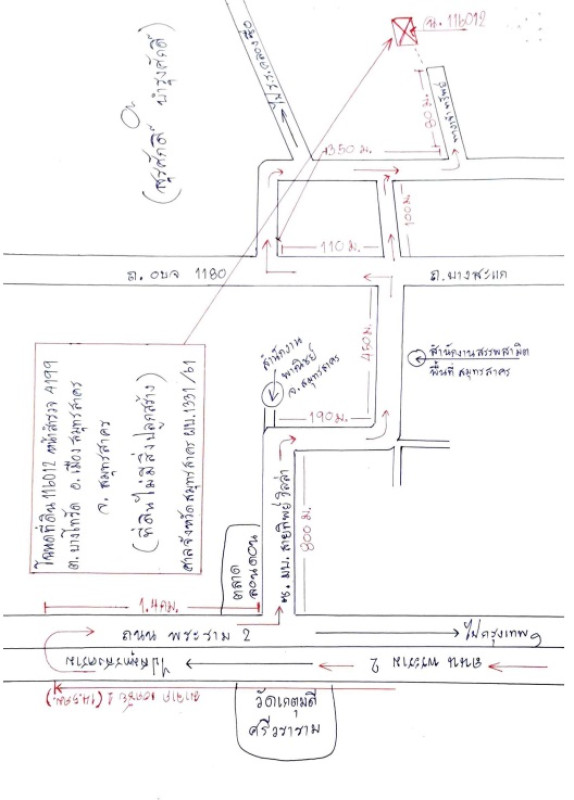 น. 116012
80 ม.
350 ม.
ไป ร.ร.คลองซื่อ
100 ม.
(สุรศักดิ์ บำรุงศักดิ์)
110 ม.
ถ. อบจ 1180
ถ.บางชะแก
450 ม.
สำนักงานสรรพสามิต
พื้นที่ สมุทรสาคร
สำนักงาน
พาณิชย์
จ. สมุทรสาคร
190 ม.
โฉนดที่ดิน 116012 หน้าสำรวจ 4199
ต. บางโทรัด อ.เมือง สมุทรสาคร
จ. สมุทรสาคร
(ที่ดินไม่มีสิ่งปลูกสร้าง)
ศาลจังหวัดสมุทรสาคร ผบ.1331/61
800 ม.
ซ. มบ. สายทิพย์ วิลล่า
ตลาด
ลอนดอน
1.4 กม.
ถนน พระราม 2
ไปกรุงเทพฯ
ถนน พระราม 2
ไปสมุทรสงคราม
วัดเกตุมดี
ศรีวราราม